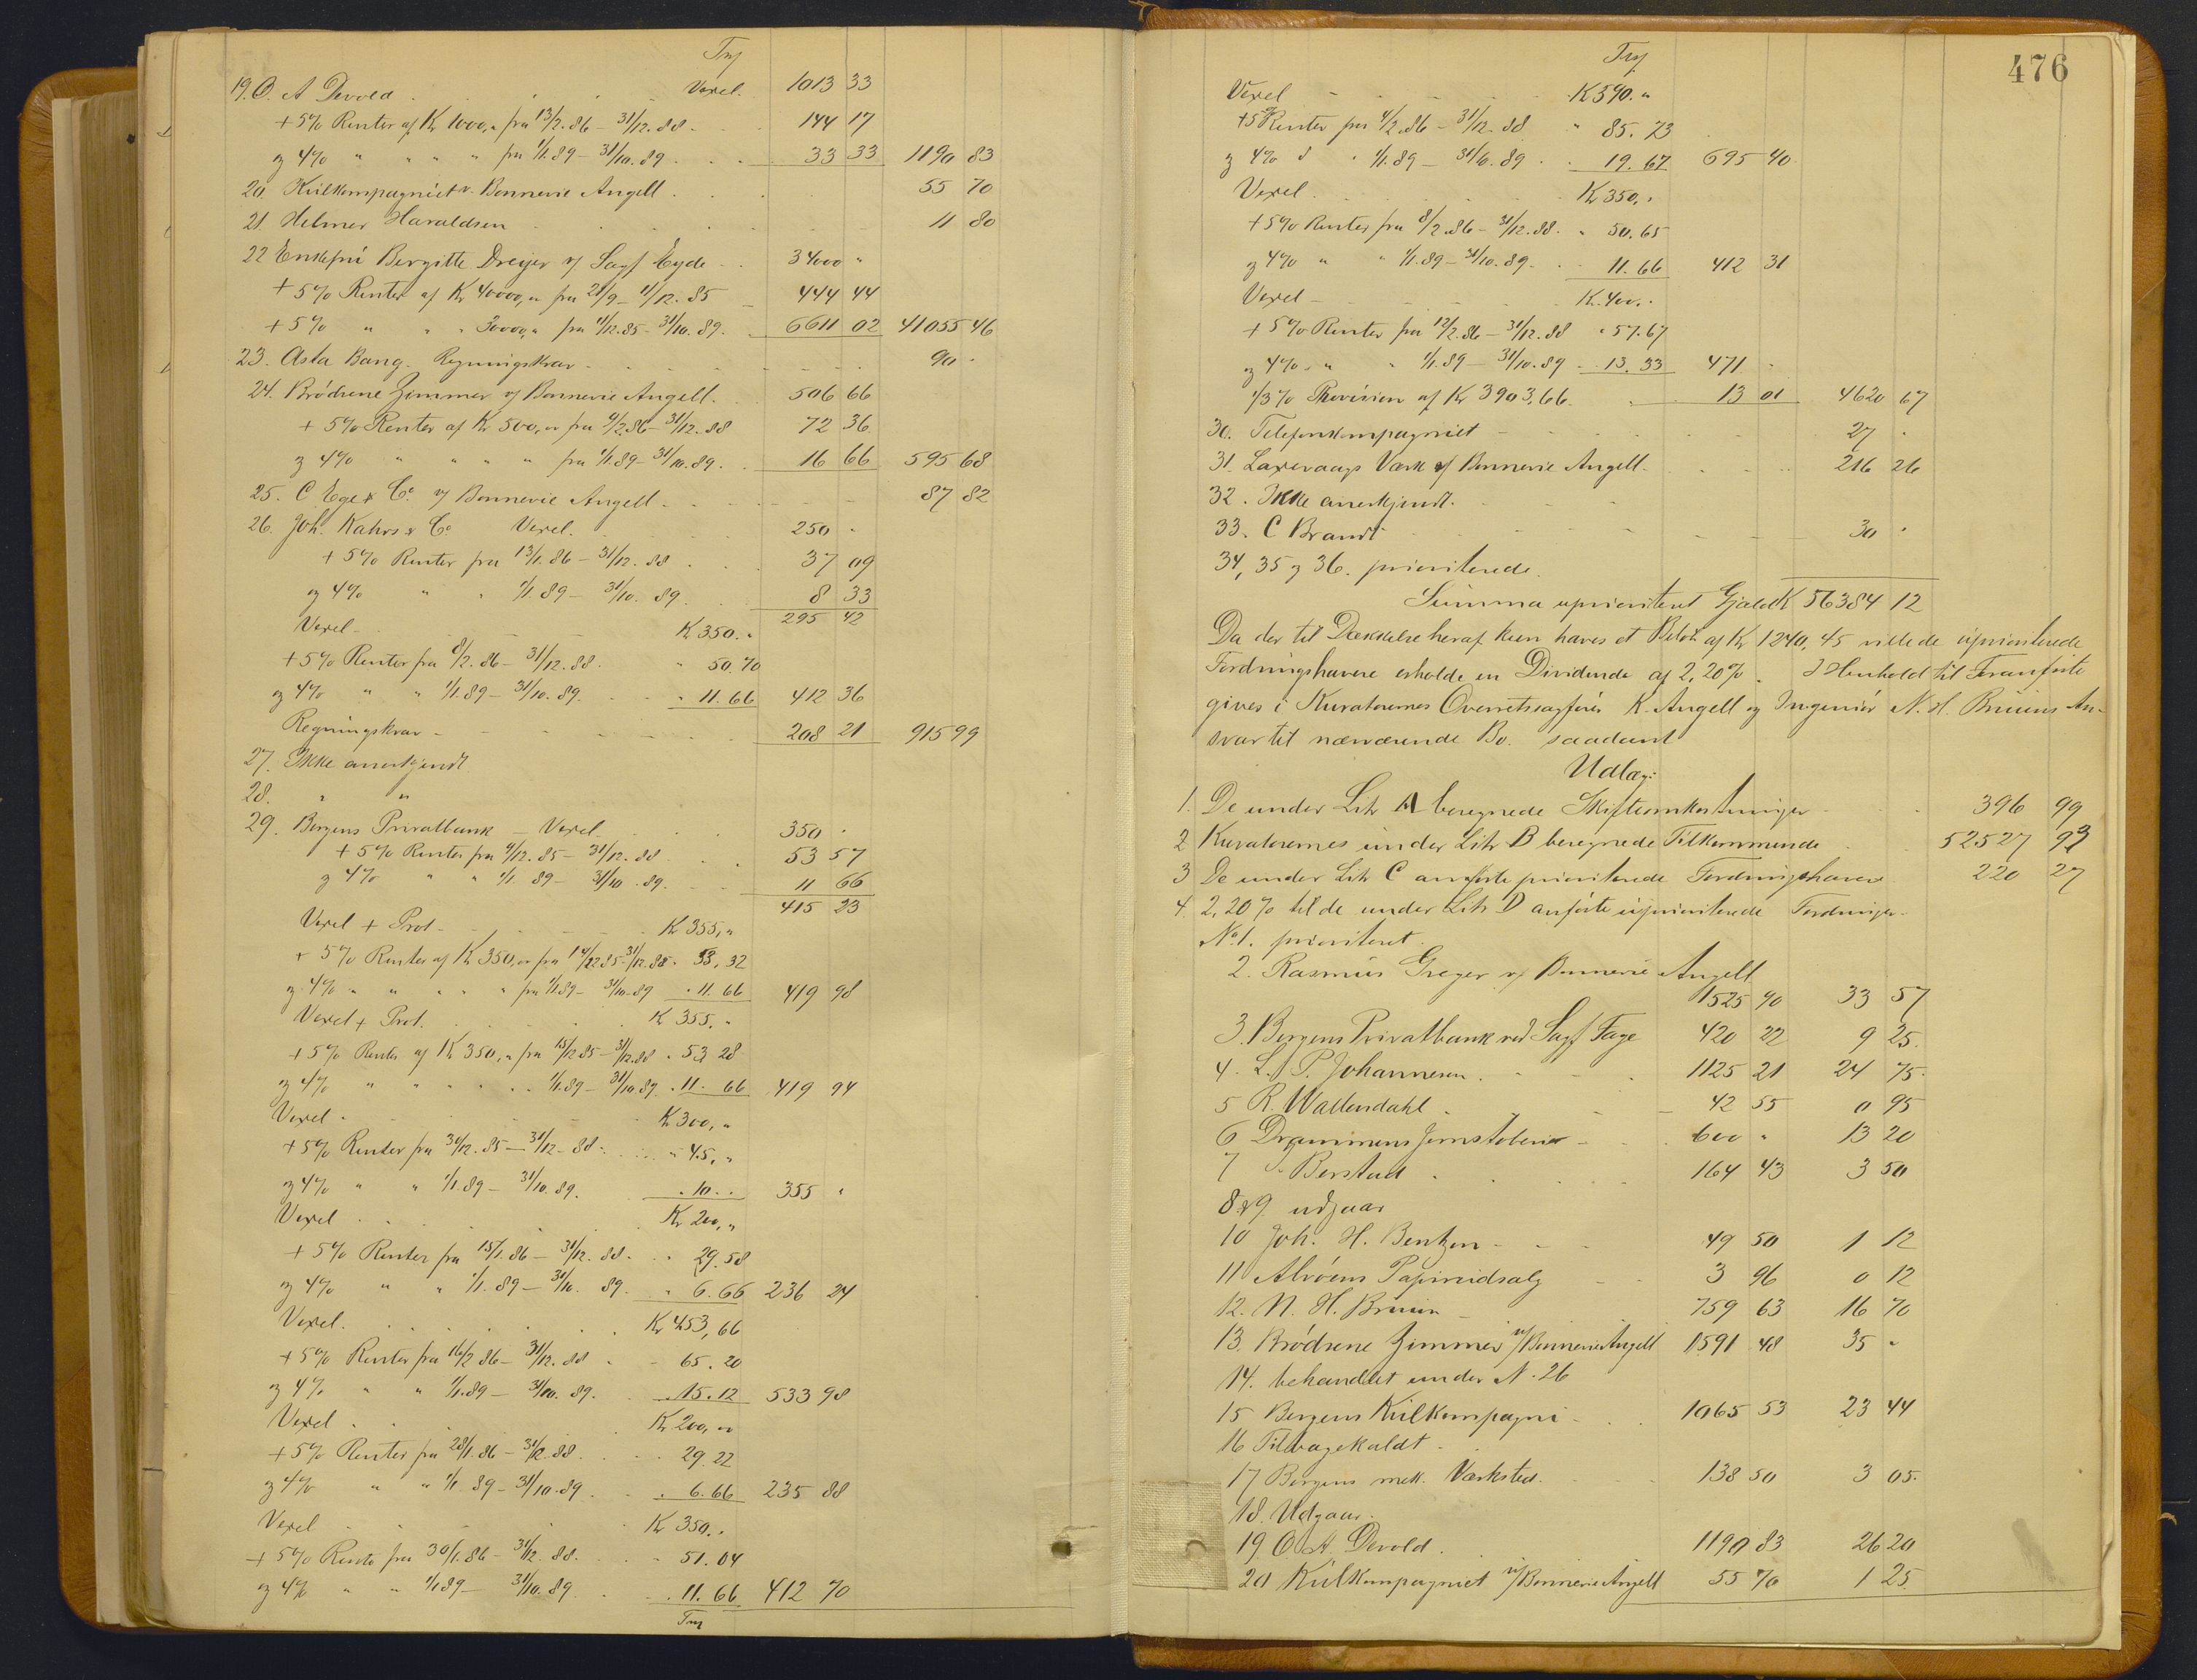 19. O. A Devold . . . Vexel. 1013 33
+ 5% Renter af Kr 1000,„ fra 13/2.86 – 31/12.88 – 144 17
og 4% „ „ „ „ fra 1/1.89 – 31/10.89 . . . 33 33 1190 83
20. Kulkompagniet v. Bonnevie Angell . . . 55 70
21. Helmer Haraldsen . . . 11 80
22 Enkefrú Bergitte Dreyer v/ Sagf Eyde . . 34000 „
+ 5% Renter af Kr 40000,„ fra 21/9 – 11/12.85 – 444 44
+ 5% „ „ „ 30000,„ fra 11/12.85 – 31/10.89. 6611 02 41055 46
23. Asta Bang. Regningskrav . . . 90 „
24. Brødrene Zimmer v/ Bonnevie Angell. 506 66
+ 5% Renter af Kr 500,„ fra 9/2.86 – 31/12.88 72 36
og 4% „ „ „ „ fra 1/1.89 – 31/10.89. 16 66 595 68
25. C Ege & Co v/ Bonnevie Angell . . . 87 82
26. Joh. Kahrs & Co Vexel. . . 250 „
+ 5% Renter fra 13/1.86 – 31/12.88 . . 37 09
og 4% „ „ 1/1.89 – 31/10.89. 8 33
295 42
Vexel – – – Kr 350.„
+ 5% Renter fra 8/2.86 – 31/12.88. „ 50.70
og 4% „ „ 1/1.89 – 31/10.89. „ 11.66 412 36
Regningskrav – – – 208 21 915 99
27. Ikke anerkjendt
28. „ „
29. Bergens Privatbank – Vexel. . . 350 „
+ 5% Renter fra 9/12.85 – 31/12.88 . . 53 57
og 4% „ „ 1/1 89 – 31/10.89. . 11 66
415 23
Vexel + Prot. – – Kr 355,„
+ 5% Renter af Kr 350,„ fra 14/12 85 – 31/12.88. 53,32
og 4% „ „ „ „ fra 1/1 89 – 31/10.89 . 11.66 419 98
Vexel + Prot. . . . Kr 355.„
+ 5% Renter af Kr 350,„ fra 15/12 85 – 31/12.88 . 53 28
og 4% „ „ „ „ 1/1.89 – 31/10.89. . 11. 66 419 94
Vexel . . . Kr 300,„
+ 5% Renter fra 30/12.85 – 31/12.88. . . „ 45,„
og 4% „ „ 1/1.89 – 31/10.89. . 10.. 355 „
Vexel . . . Kr 200,„
+ 5% Renter fra 15/1.86 – 31/12.88. . . 29.58
og 4% „ „ 1/1.89 – 31/10.89. „ 6.66 236 24
Vexel. . . . Kr 453,66
+ 5% Renter fra 16/2 86 – 31/12.88 . – 65.20
og 4% „ „ 1/1.89 – 31/10.89. . 15.12 533 98
Vexel . . . Kr 200,„
+ 5% Renter fra 28/1.86 – 31/12.88. . . 29.22
og 4% „ „ 1/1 89 – 31/10.89 . . 6.66 235 88
Vexel . . . Kr 350.„
+ 5% Rente fra 30/1.86 – 31/12.88. . . 51.04
og 4% „ „ 1/1 89 – 31/10.89 . . 11.66 412 70
476
Vexel – – – Kr 390.„
+ 5% Renter fra 4/2.86 – 31/12.88 „ 85.73
og 4% „ „ 1/1.89 – 31/10.89 . . 19.67 695 40
Vexel . . . Kr 350,„
+ 5% Renter fra 8/2.86 – 31/12.88. „ 50.65
og 4% „ „ 1/1.89 – 31/10.89. . . 11.66 412 31
Vexel – – – Kr. 400,„
+ 5% Renter fra 12/2.86 – 31/12.88 „ 57.67
og 4% „ „ 1/1.89 – 31/10.89 – 13.33 471 „
1/3% Provision af Kr 3903,66. – 13 01 4620 67
30. Telefonkompagniet – – – 27 „
31. Laxevaags Værk v/ Bonnevie Angell. . . 216 26
32. Ikke anerkjendt.
33. C Brandt – – – 30 „
34, 35 og 36. prioriterede.
Summa uprioriteret Gjæld Kr 56384 12
Da der til Dækkelse heraf kun haves et Beløb af Kr 1240,45 ville de úprioriterede
Fordringshavere erholde en Dividende af 2,20%. I Henhold til Foranførte
gives i Kuratorernes Overretssagfører K. Angell og Ingeniør N. H. Bruuns An-
svar til nærværende Bo. saadant
Udlæg:
1. De under Litr A beregnede Skifteomkostninger . . 396 99
2 Kuratorernes under Litr B beregnede Tilkommende . 52527 93
3 De under Litr C anførte prioriterede Fordringshavere 220 27
4. 2,20% til de under Litr D anførte úprioriterede Fordringer.
No 1. prioriteret.
2. Rasmus Greger v/ Bonnevie Angell
1525 90 33 57
3. Bergens Privatbank ved Sagf Faye 420 22 9 25.
4. L. P. Johannesen . – – . 1125 21 24 75.
5 R. Wallendahl . – – 42 55 0 95
6 Drammens Jernstøberi – – 600 „ 13 20
7 Berstad . . . 164 43 3 50
8 & 9. udgaar
10 Joh. H. Bentzen – – – 49 50 1 12
11 Alvøens Papirúdsalg – – 3 96 0 12
12. N. H. Bruun – 759 63 16 70
13. Brødrene Zimmer v/ Bonnevie Angell 1591 48 35 „
14. behandlet under N. 26
15 Bergens Kúlkompagni – . . 1065 53 23 44
16 Tilbagekaldt .
17 Bergens mek. Værksted. – – 138 50 3 05.
18. Udgaar.
19 O. A. Devold . 1190 83 26 20
20 Kúlkompagniet v/ Bonnevie Angell 55 70 1 25.